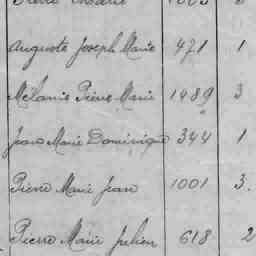 Auguste Joseph Marie 471 1
Mélanie Pierre Marie 1489 3
Jean Marie Dominique 344 1
Pierre Marie Jean 1001 3.
Pierre Marie Julien 618 2